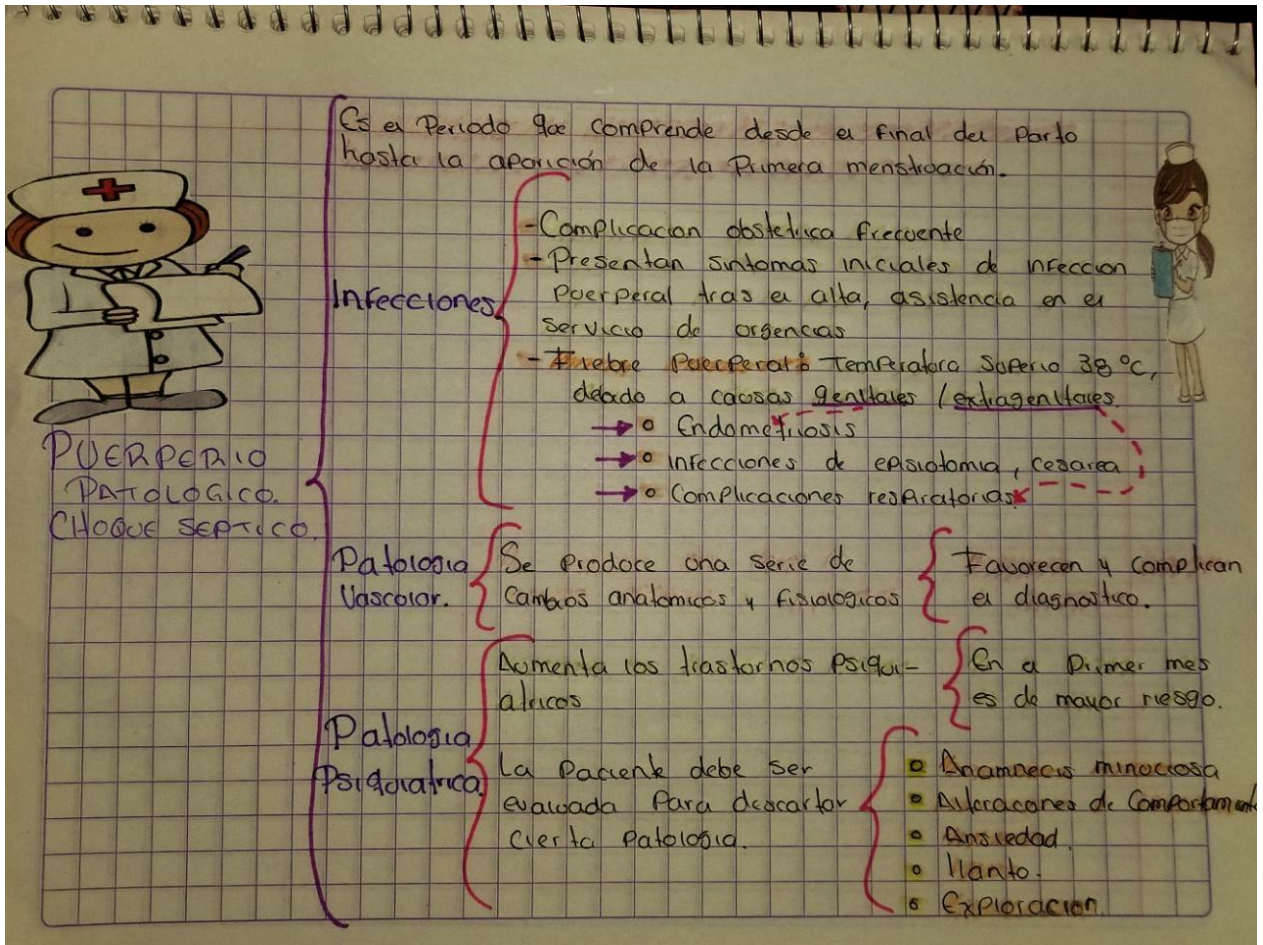 Es el Periodo que comprende desde el final del Parto
hasta la aparición de la Primera menstruación.
-Complicacion obstetrica frecuente
-Presentan sintomas iniciales de infeccion
Puerperal tras el alta, asistencia en el
servicio de urgencias
Infecciones
-Fiebre Puerperal: Temperatura Superio 38 °C,
debido a causas genitales / extragenitales.
Endometriosis
infecciones de episiotomia, cesarea
Complicaciones respiratorias
PUERPERIO
PATOLOGICO.
CHOQUE SEPTICO.
Patologia
Vascular.
Se produce una serie de
cambios anatomicos y fisiologicos
Favorecen y complican
el diagnostico.
Patologia
Psiquiatrica.
Aumenta los trastornos Psiqui-
atricos
En el Primer mes
es de mayor riesgo.
La Paciente debe ser
evaluada Para descartar
cierta Patologia.
Anamnecis minuciosa
Alteraciones de Comportament
Ansiedad.
llanto.
Exploracion.